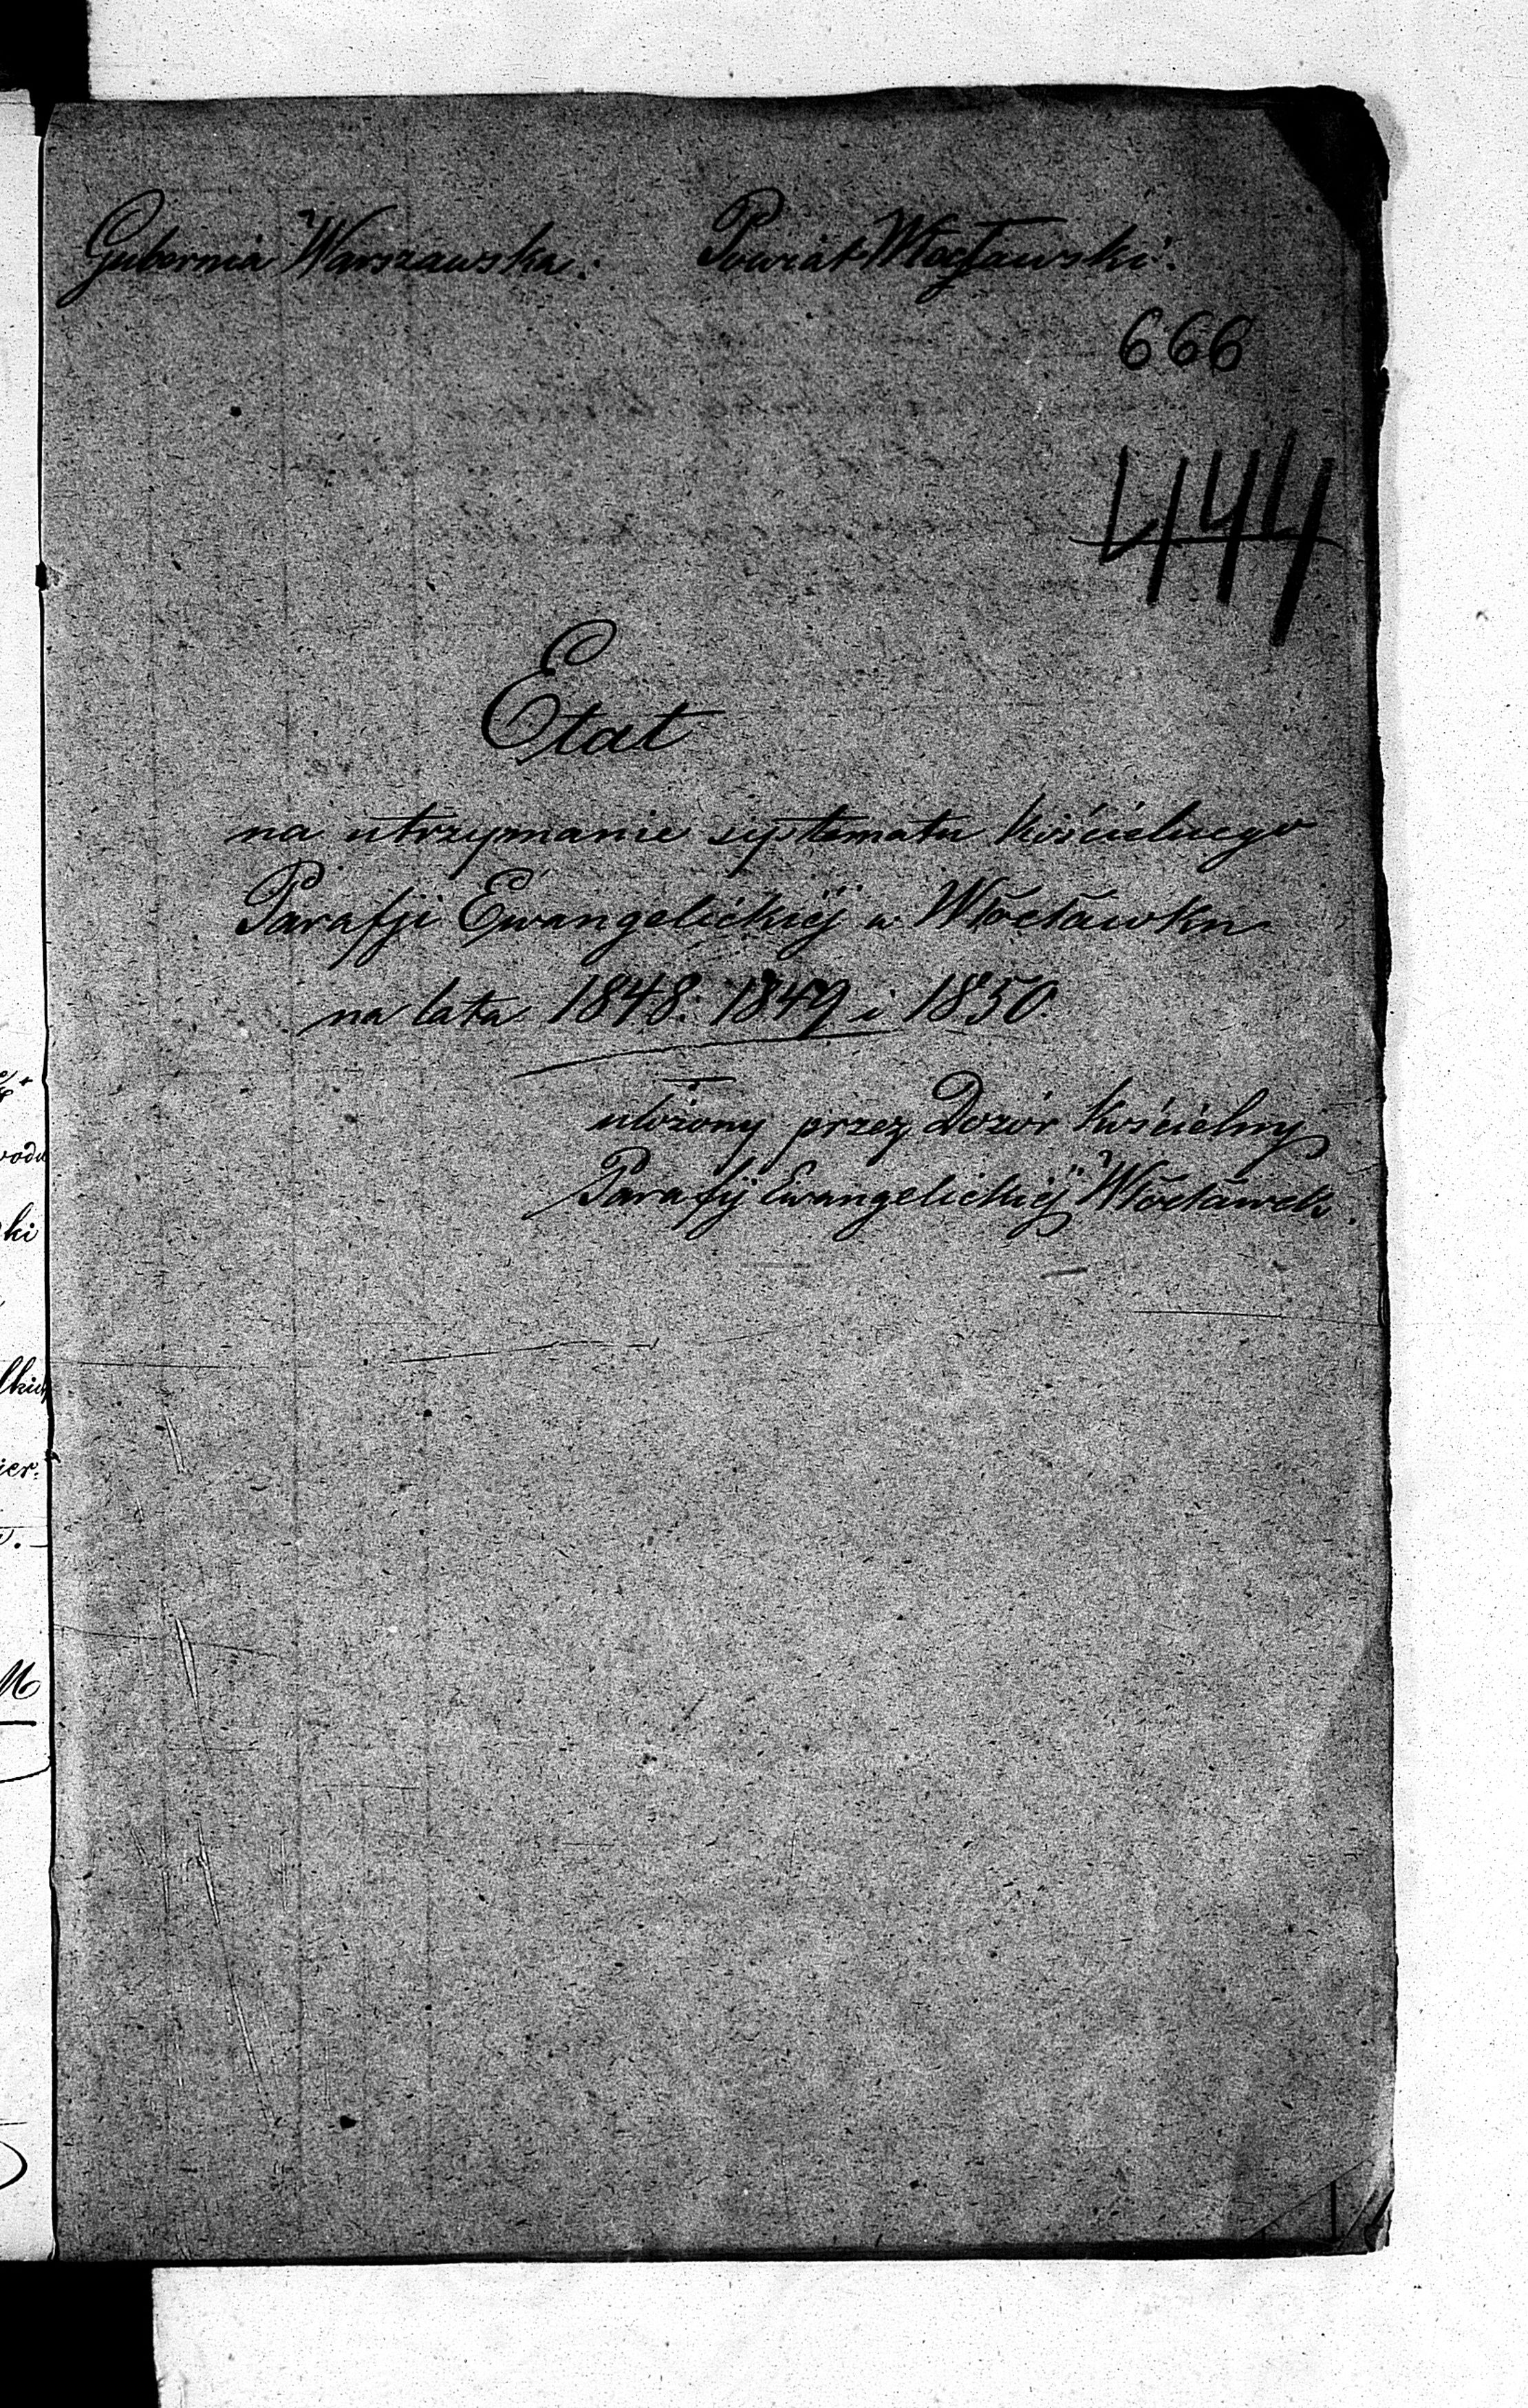 Gubernia Warszawska: Powiat Włocławski:
666
444
Etat
na utrzymanie systematu kościelnego
Parafji Ewangelickiéj w Włocławku
na lata 1848. 1849 i 1850.
ułożony przez Dozór kościelny
Parafij Ewangelickiéj Włocławek.